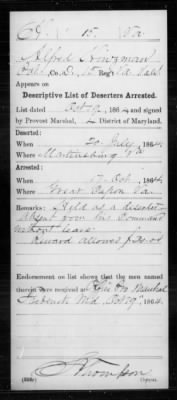 15 Va
Alfred Hinzman
Co. D, 15 Reg't Va
Appears on
Descriptive List of Deserters Arrested.
List dated Oct 19, 1864 and signed
by Provost Marshal, 4 District of Maryland.
Deserted:
When 20 July, 1864.
Where Martinsburg Va
Arrested:
When 17 Oct, 1864
Where Great Capon Va.
Remarks: Held as a deserter
Absent from his Command
without leave
Reward allowed
Endorsement on list shows that the men named
therein were received at Marshal
Frederick Md, 1864.
Thompson
Copyist.